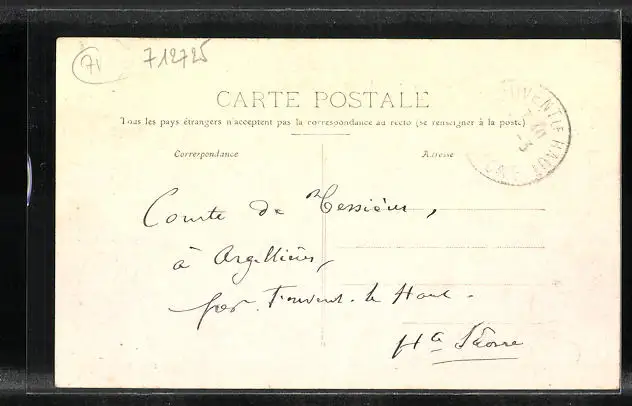 71
712725
CARTE POSTALE
Tous les pays étrangers n'acceptent pas la correspondance au recto (se renseigner à la poste)
Correspondance
Adresse
OUVENT LE HAUT
Comte de Tessières,
à Argillières,
par Fouvent-le Haut.
Hte Saône